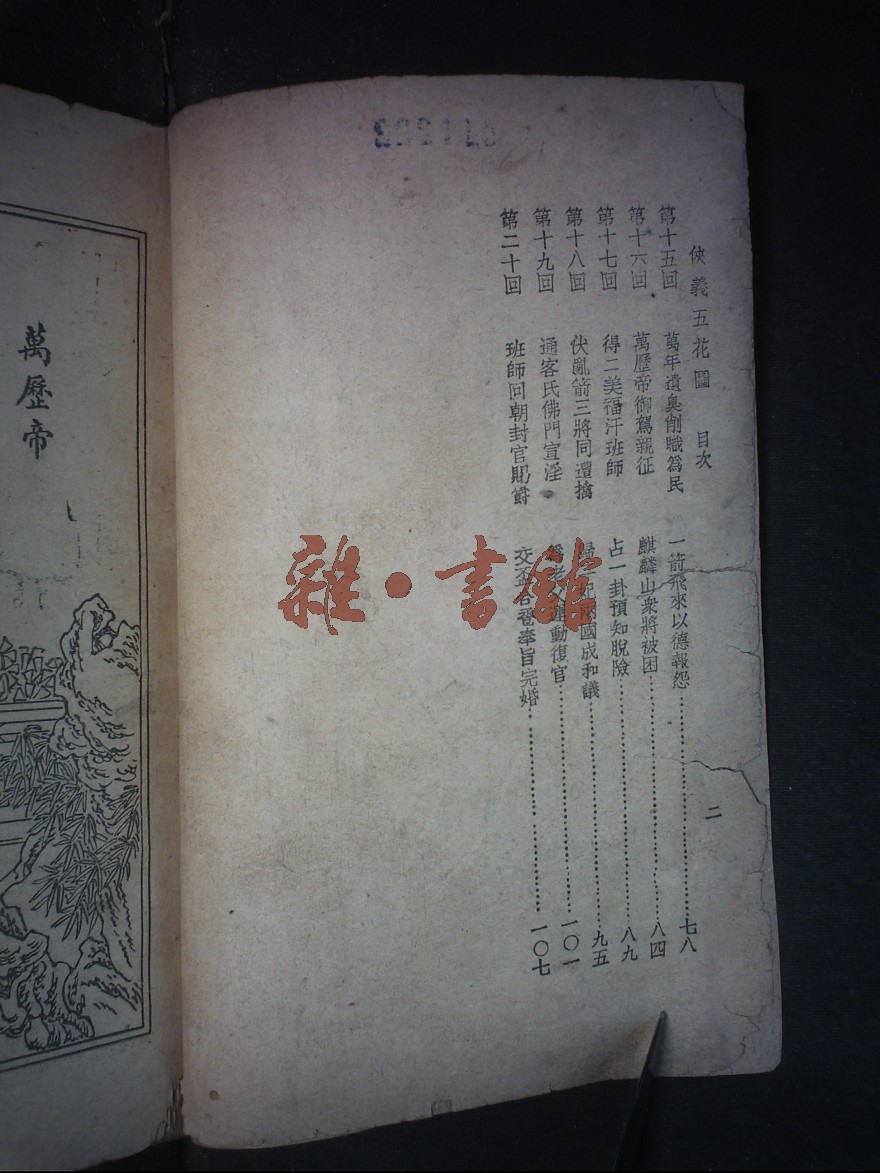 俠義五花圖 目次 二
第十五回 萬年遺臭削職爲民 一箭飛來以德報怨……七八
第十六回 萬歷帝御駕親征 麒麟山衆將被困……八四
第十七回 得二美福汗班師 占一卦預知脫險……八九
第十八回 伏亂箭三將同遭擒 國成和議……九五
第十九回 通客氏佛門宣淫 運動復官……一〇一
第二十回 班師回朝封官賜爵 交盃合卺奉旨完婚……一〇七
萬歷帝
雜·書館